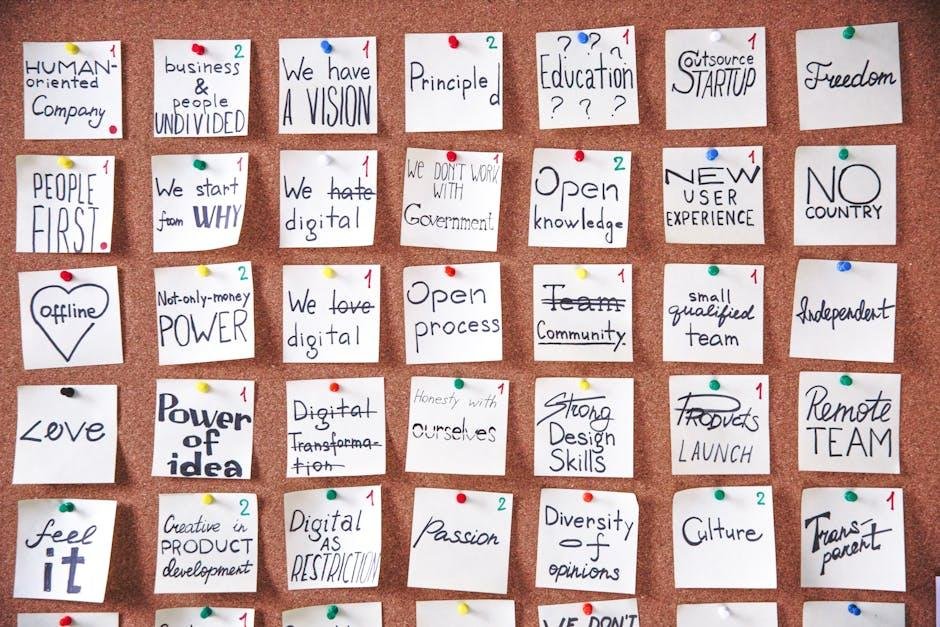 1
HUMAN-
oriented
Company
2
business
&
people
UNDIVIDED
1
We have
A VISION
2
Principled
1
? ? ?
Education
? ? ?
1
Outsource
STARTUP
Freedom
PEOPLE
FIRST.
1
We start
from WHY
1
We hate
digital
1
WE DON'T WORK
WITH
Government
2
Open
knowledge
1
NEW
USER
EXPERIENCE
NO
COUNTRY
offline
2
Not-only-money
POWER
1
We love
digital
Open
process
1
Team
Community
1
small
qualified
team
Independent
Love
1
Power
of
idea
Digital
Transforma-
tion
1
Honesty with
ourselves
Strong
Design
Skills
1
Products
LAUNCH
Remote
TEAM
feel
it
2
Creative in
PRODUCT
development
1
Digital
AS
RESTRICTION
2
Passion
Diversity
of
opinions
2
Culture
1
Trans-
parent
WE DON'T